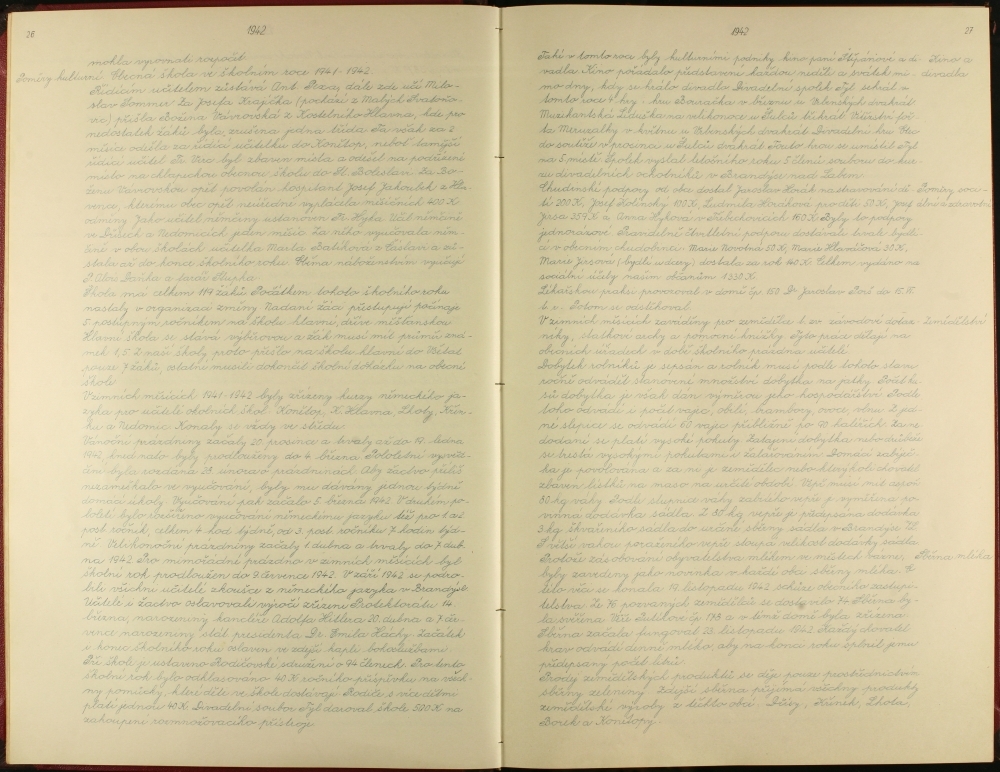 26
1942
mohla vyrovnati rozpočet.
Poměry kulturní. Obecná škola ve školním roce 1941-1942.
Řídícím učitelem zůstává Ant. dále zde učí Milo-
slav Sommer. Za Josefa Krajíčka (pochází z Malých
přišla Božena Vávrovská z Kostelního Hlavna, kde pro
nedostatek žáků byla zrušena jedna třída. Ta však za 2
měsíce odešla za řídící učitelku do Konětop, neboť tamější
řídící učitel Fr. byl zbaven místa a odešel na podřízené
místo na chlapeckou obecnou školu do Ml. Boleslavi. Za Bo-
ženu Vávrovskou opět povolán hospitant Josef Jakoubek z
kterému obec opět neúředně vyplácela měsíčních 400 K
odměny. Jako učitel němčiny ustanoven Fr. Hyka. Učil němčině
ve Dřísech a Nedomicích jeden měsíc. Za něho vyučovala něm-
čině v obou školách učitelka Marta z Čáslavi a zů-
stala až do konce školního roku. Oběma náboženstvím vyučují
P. Alois a farář
Škola má celkem 119 žáků. Počátkem tohoto školního roku
nastaly v organizaci změny. Nadaní žáci přestupují počínaje
5. postupným ročníkem na školu hlavní, dříve měšťanskou.
Hlavní škola se stává výběrovou a žák musí mít průměr zná-
mek 1,5. Z naší školy proto přešlo na školu hlavní do Všetat
pouze 7 žáků, ostatní museli dokončit školní docházku na obecné
škole.
V zimních měsících 1941-1942 byly zřízeny kursy německého ja-
zyka pro učitele okolních škol: Konětop, K. Hlavna, Lhoty, Křen-
ku a Nedomic. Konaly se vždy ve středu.
Vánoční prázdniny začaly 20. prosince a trvaly až do 19. ledna
1942, hned nato byly prodlouženy do 4. března. Pololetní vysvěd-
čení byla rozdána 28. února o prázdninách. Aby žactvo příliš
nezameškalo ve vyučování, byly mu dávány jednou týdně
domácí úkoly. Vyučování pak začalo 5. března 1942. V druhém po-
loletí bylo rozšířeno vyučování německému jazyku též pro 1. a 2.
post. ročník, celkem 4 hod. týdně, od 3. post. ročníku 7 hodin týd-
ně. Velikonoční prázdniny začaly 1. dubna a trvaly do 7. dub-
na 1942. Pro mimořádné prázdno v zimních měsících byl
školní rok prodloužen do 9. července 1942. V září 1942 se podro-
bili všichni učitelé zkoušce z německého jazyka v Brandýse.
Učitelé i žactvo oslavovali výročí zřízení Protektorátu 14.
března, narozeniny kancléře Adolfa Hitlera 20. dubna a 7. čer-
vence narozeniny stát. presidenta Dr. Emila Háchy. Začátek
i konec školního roku oslaven ve zdejší kapli bohoslužbami.
Při škole je ustaveno Rodičovské sdružení o 94 členech. Pro tento
školní rok bylo odhlasováno 40 K ročního příspěvku na všech-
ny pomůcky, které děti ve škole dostávají. Rodiče s více dětmi
platí jednou 40 K. Divadelní soubor Tyl daroval škole 500 K na
zakoupení rozmnožovacího přístroje.
27
1942
Také v tomto roce byly kulturními podniky kino paní Štěpánové a di- Kino a
vadla. Kino pořádalo představení každou neděli a svátek mi- divadla
mo dny, kdy se hrálo divadlo. Divadelní spolek Tyl sehrál v
tomto roce 4 hry: hru Bouračka v březnu ve Vrbenských dvakrát,
Muzikantská Liduška na velikonoce u třikrát. Vítězství
ta v květnu u Vrbenských dvakrát. Divadelní hru
do soutěže v prosinci u dvakrát. Touto hrou se umístil Tyl
na 5. místě. Spolek vyslal letošního roku 5 členů souboru do kur-
su divadelních ochotníků v Brandýse nad Labem.
Chudinské podpory od obce dostal Jaroslav Horák na stravování dě- Poměry soci-
tí 200 K, Josef Košinský 100 K, Ludmila Horáková pro děti 50 K, Josef ální a zdravotní
Jirsa 359 K a Anna Hyková v Třebechovicích 160 K. Byly to podpory
jednorázové. Pravidelně čtvrtletní podporu dostávají trvale bydlí-
cí v obecním chudobinci: Marie Novotná 50 K, Marie Hlavničová 30 K,
Marie Jirsová (bydlí u dcery) dostala za rok 140 K. Celkem vydáno na
sociální účely našim občanům 1330 K.
Lékařskou praksi provozoval v domě čp. 150 Dr. Jaroslav do 15. VI.
t. r. Potom se odstěhoval.
V zimních měsících zavedeny pro zemědělce t. zv. závodové dotaz- Zemědělství
níky, statkové archy a pomocné knížky. Tyto práce dělají na
obecních úřadech v době školního prázdna učitelé.
Dobytek rolníků je sepsán a rolník musí podle tohoto stavu
ročně odvádět stanovené množství dobytka na jatky. Počet ku-
sů dobytka je však dán výměrou jeho hospodářství. Podle
toho odvádí i počet vajec, obilí, brambory, ovoce, vlnu. Z jed-
né slepice se odvádí 60 vajec přibližně po 90 haléřích. Za ne-
dodání se platí vysoké pokuty. Zatajení dobytka nebo
se trestá vysokými pokutami i žalářováním. Domácí zabijač-
ka je povolována a za ni je zemědělec nebo kterýkoli chovatel
zbaven lístků na maso na určité období. Vepř musí mít aspoň
80 kg váhy. Podle stupnice váhy zabitého vepře je vyměřena po-
vinná dodávka sádla. Z 80 kg vepře je předepsána dodávka
3 kg škvařeného sádla do určené sběrny sádla v Brandýse n/L.
S větší vahou poraženého vepře stoupá velikost dodávky sádla.
Protože zásobování obyvatelstva mlékem ve městech vázne, Sběrna mléka
byly zavedeny jako novinka v každé obci sběrny mléka. K
této věci se konala 19. listopadu 1942 schůze obecního zastupi-
telstva. Ze 76 pozvaných zemědělců se dostavilo 74. Sběrna by-
la svěřena Věře čp. 173 a v témž domě byla zřízena.
Sběrna začala fungovat 23. listopadu 1942. Každý chovatel
krav odvádí denně mléko, aby na konci roku splnil jemu
předepsaný počet litrů.
Prodej zemědělských produktů se děje pouze prostřednictvím
sběrny zeleniny. Zdejší sběrna přijímá všechny produkty
zemědělské výroby z těchto obcí: Dřísy, Křenek, Lhota,
Borek a Konětopy.